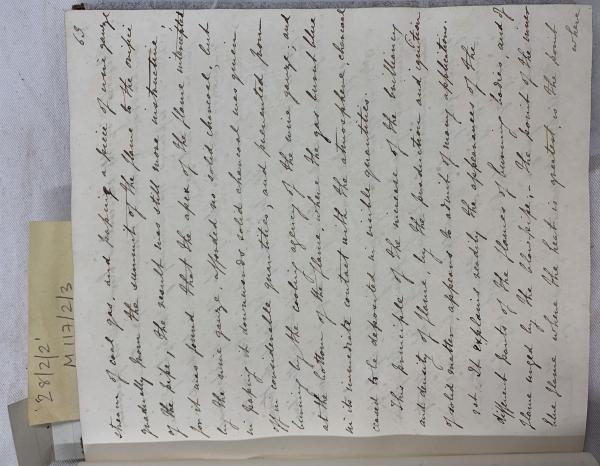 63
stream of coal gas, and passing a piece of wire gauze
gradually from the summit of the flame to the orifice
of the pipe; the result was still more instructive:
for it was found that the apex of the flame intercepted
by the wire gauze afforded no solid charcoal; but
in passing it downwards solid charcoal was given
off in considerable quantities, and prevented from
burning by the cooling agency of the wire gauze; and
at the bottom of the flame where the gas burnt blue
in its immediate contact with the atmosphere charcoal
ceased to be deposited in visible quantities.
This principle of the increase of the brilliancy
and density of flame, by the production and ignition
of solid matter appears to admit of many applications.
1st. It explains readily the appearances of the
different parts of the flames of burning bodies and of
flame urged by the blowpipe. The point of the inner
blue flame where the heat is greatest, is the point
where
'28/2/2'
M117/2/3